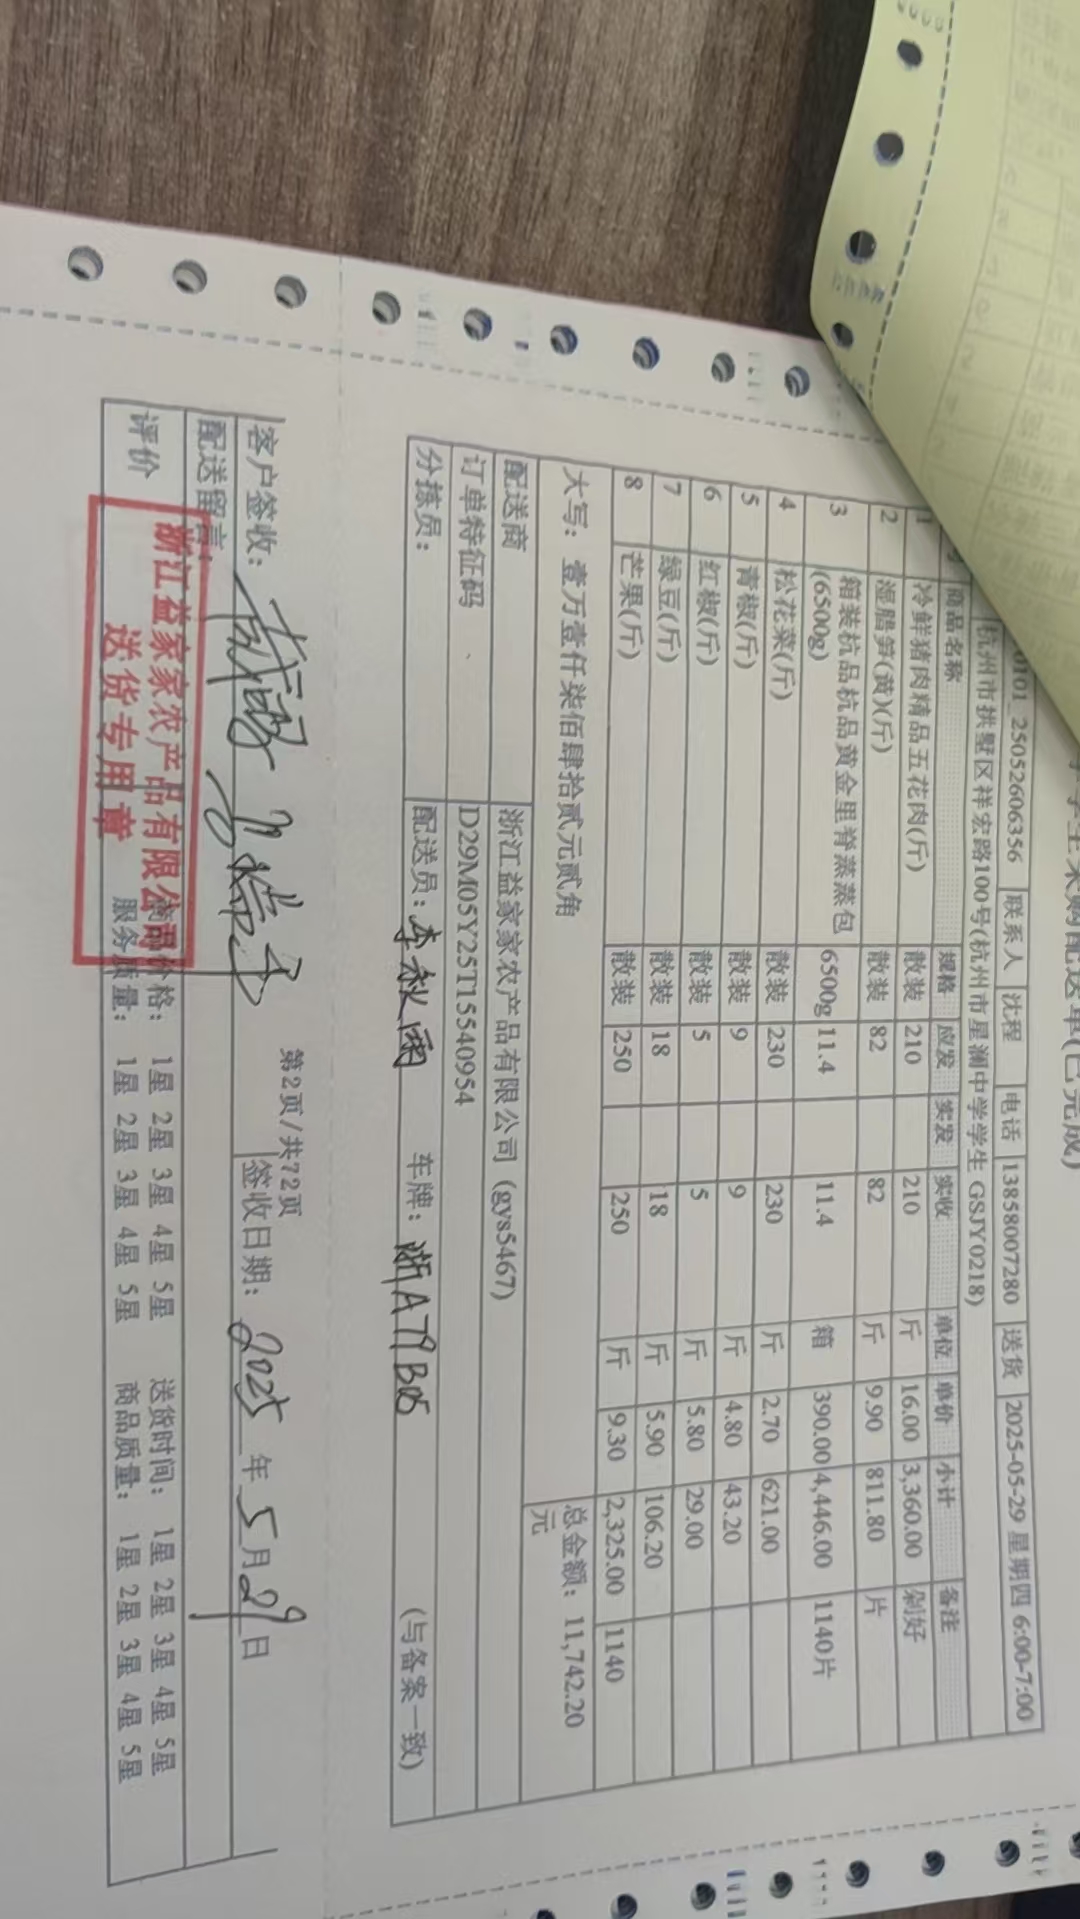 学生采购配送单(已完成)
0101_25052606356 联系人 沈程 电话 13858007280 送货 2025-05-29 星期四 6:00-7:00
杭州市拱墅区祥宏路100号(杭州市星澜中学学生 GSJY0218)
号 商品名称 规格 应发 实发 实收 单位 单价 小计 备注
1 冷鲜猪肉精品五花肉(斤) 散装 210 210 斤 16.00 3,360.00 剁好
2 湿腊笋(黄)(斤) 散装 82 82 斤 9.90 811.80 片
3 箱装杭品杭品黄金里脊蒸蒸包(6500g) 6500g 11.4 11.4 箱 390.00 4,446.00 1140片
4 松花菜(斤) 散装 230 230 斤 2.70 621.00
5 青椒(斤) 散装 9 9 斤 4.80 43.20
6 红椒(斤) 散装 5 5 斤 5.80 29.00
7 绿豆(斤) 散装 18 18 斤 5.90 106.20
8 芒果(斤) 散装 250 250 斤 9.30 2,325.00 1140
大写： 壹万壹仟柒佰肆拾贰元贰角 总金额：11,742.20元
配送商 浙江益家家农产品有限公司 (gys5467)
订单特征码 D29M05Y25T15540954
分拣员： 配送员：李秋雨 车牌：浙A79B05 (与备案一致)
第2页/共72页
客户签收： 签收日期：2025 年 5 月 29 日
配送留言：
评价 商品价格： 1星 2星 3星 4星 5星 送货时间： 1星 2星 3星 4星 5星
服务质量： 1星 2星 3星 4星 5星 商品质量： 1星 2星 3星 4星 5星
浙江益家家农产品有限公司
送货专用章